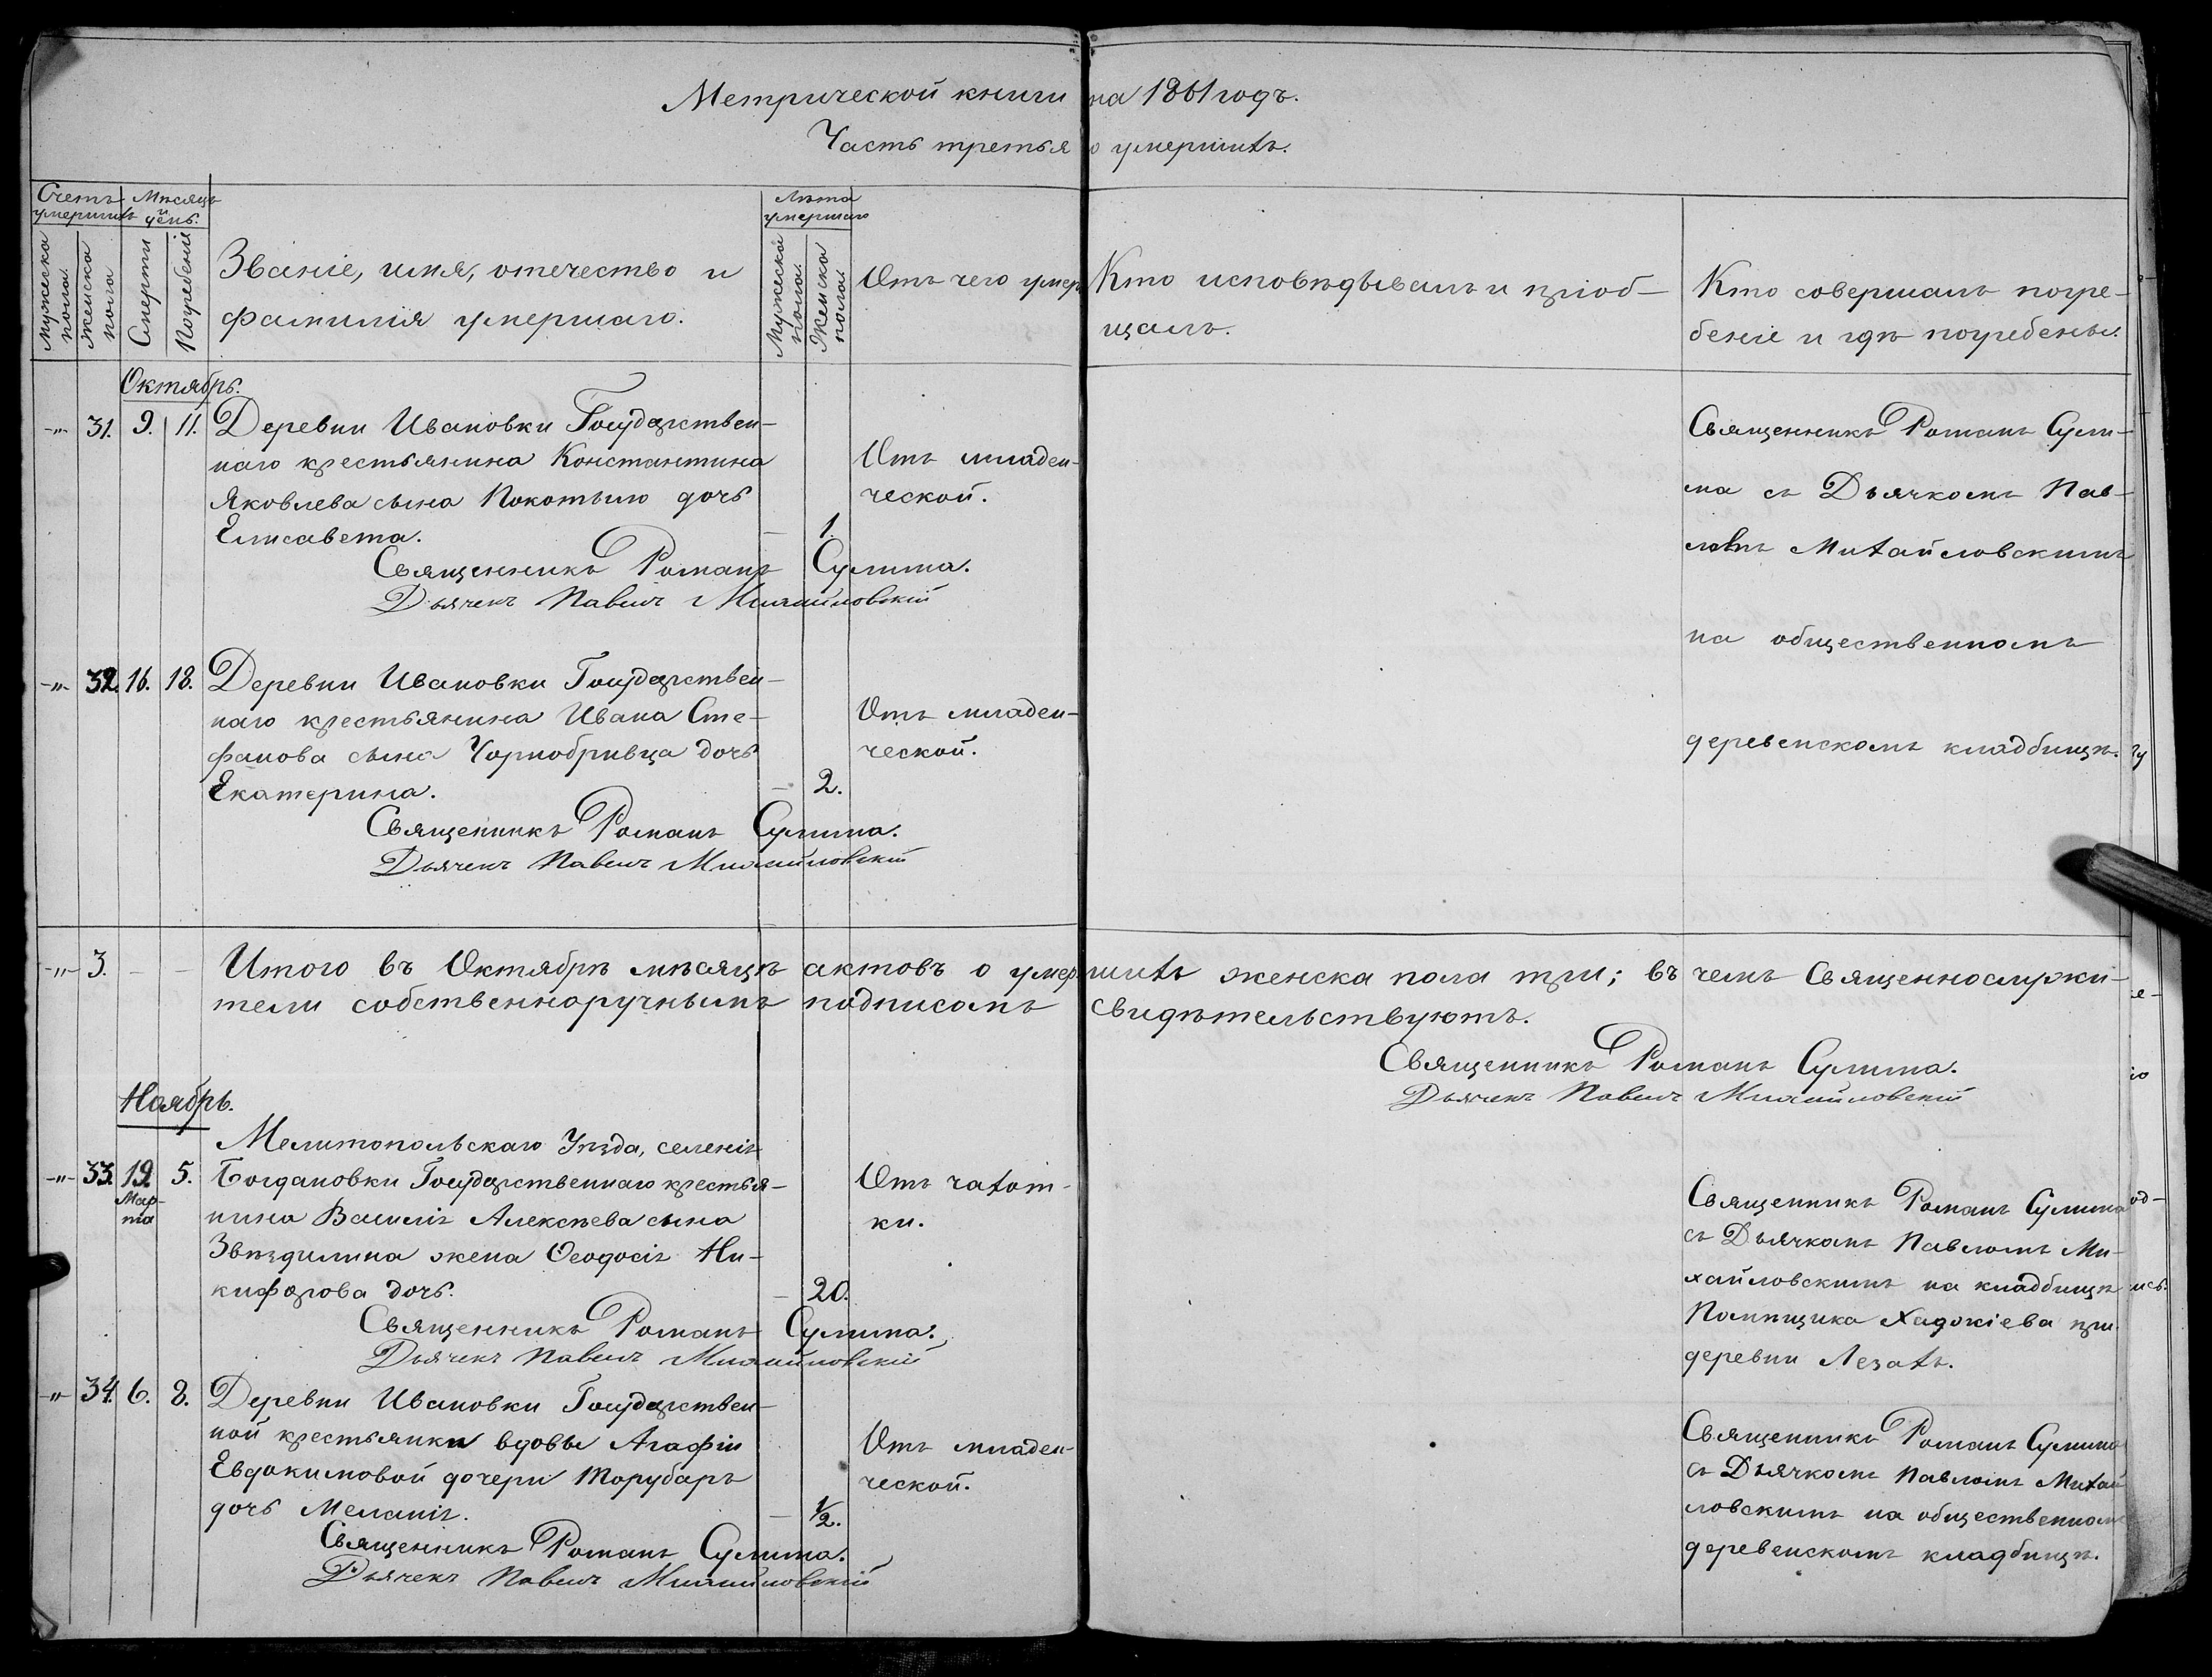 Метрической книги на 1861 годъ.
Часть третья о умершихъ.
Счетъ умершихъ
Мѣсяцъ и день.
Мужеска пола.
Женска пола
Смерти
Погребенія
Званіе, имя, отечество и
фамилія умершаго.
Лѣта умершаго
Мужеска пола.
Женска пола.
Отъ чего умер
Кто исповѣдывалъ и пріоб-
щалъ.
Кто совершалъ погре-
беніе и гдѣ погребены.
Октябрь.
-„- 31. 9. 11. Деревни Ивановки Государствен-
наго крестьянина Константина
Яковлева сына Покотыло дочь
Елисавета.
- 1.
Отъ младен-
ческой.
Священникъ Романъ Сулима.
Дьячекъ Павелъ Михайловскій
Священникъ Романъ Сули-
ма съ Дьячкомъ Пав-
ломъ Михайловскимъ
на общественномъ
деревенскомъ кладбищѣ.
-„- 32. 16. 18. Деревни Ивановки Государствен-
наго крестьянина Ивана Сте-
фанова сына Чорнобривца дочь
Екатерина.
- 2.
Отъ младен-
ческой.
Священникъ Романъ Сулима.
Дьячекъ Павелъ Михайловскій
-„- 3. - - Итого въ Октябрѣ мѣсяцѣ актовъ о умершихъ женска пола три; въ чемъ Священнослужи-
тели собственноручнымъ подписомъ свидѣтельствуютъ.
Священникъ Романъ Сулима.
Дьячекъ Павелъ Михайловскій
Ноябрь.
Мелитопольскаго Уѣзда, селенія
-„- 33. 19. Марта 5. Богдановки Государственнаго крестья-
нина Василія Алексѣева сына
Звѣздилина жена Ѳеодосія Ни-
кифорова дочь.
- 20.
Отъ чахот-
ки.
Священникъ Романъ Сулима.
Дьячекъ Павелъ Михайловскій
Священникъ Романъ Сулима
съ Дьячкомъ Павломъ Ми-
хайловскимъ на кладбищѣ
Помѣщика Хаджіева при
деревни Лезахъ.
-„- 34. 6. 8. Деревни Ивановки Государствен-
ной крестьянки вдовы Агафіи
Евдокимовой дочери Торубаръ
дочь Меланія.
- 1/2.
Отъ младен-
ческой.
Священникъ Романъ Сулима.
Дьячекъ Павелъ Михайловскій
Священникъ Романъ Сулима
съ Дьячкомъ Павломъ Михай
ловскимъ на общественномъ
деревенскомъ кладбищѣ.